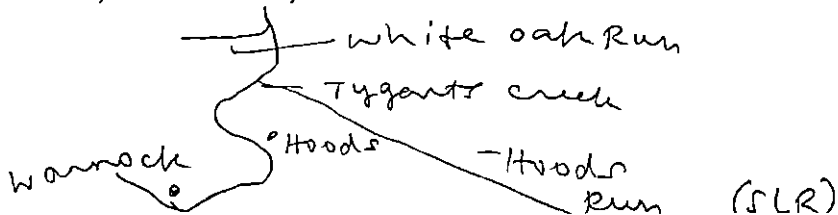 white oak Run
Tygarts creek
Hoods
Hoods
Run (SLR)
Warnock